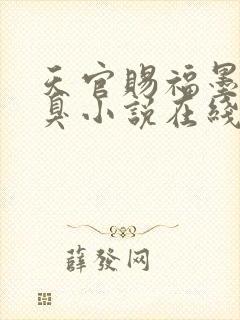 天官賜福墨
臭小說在綫
薛發网